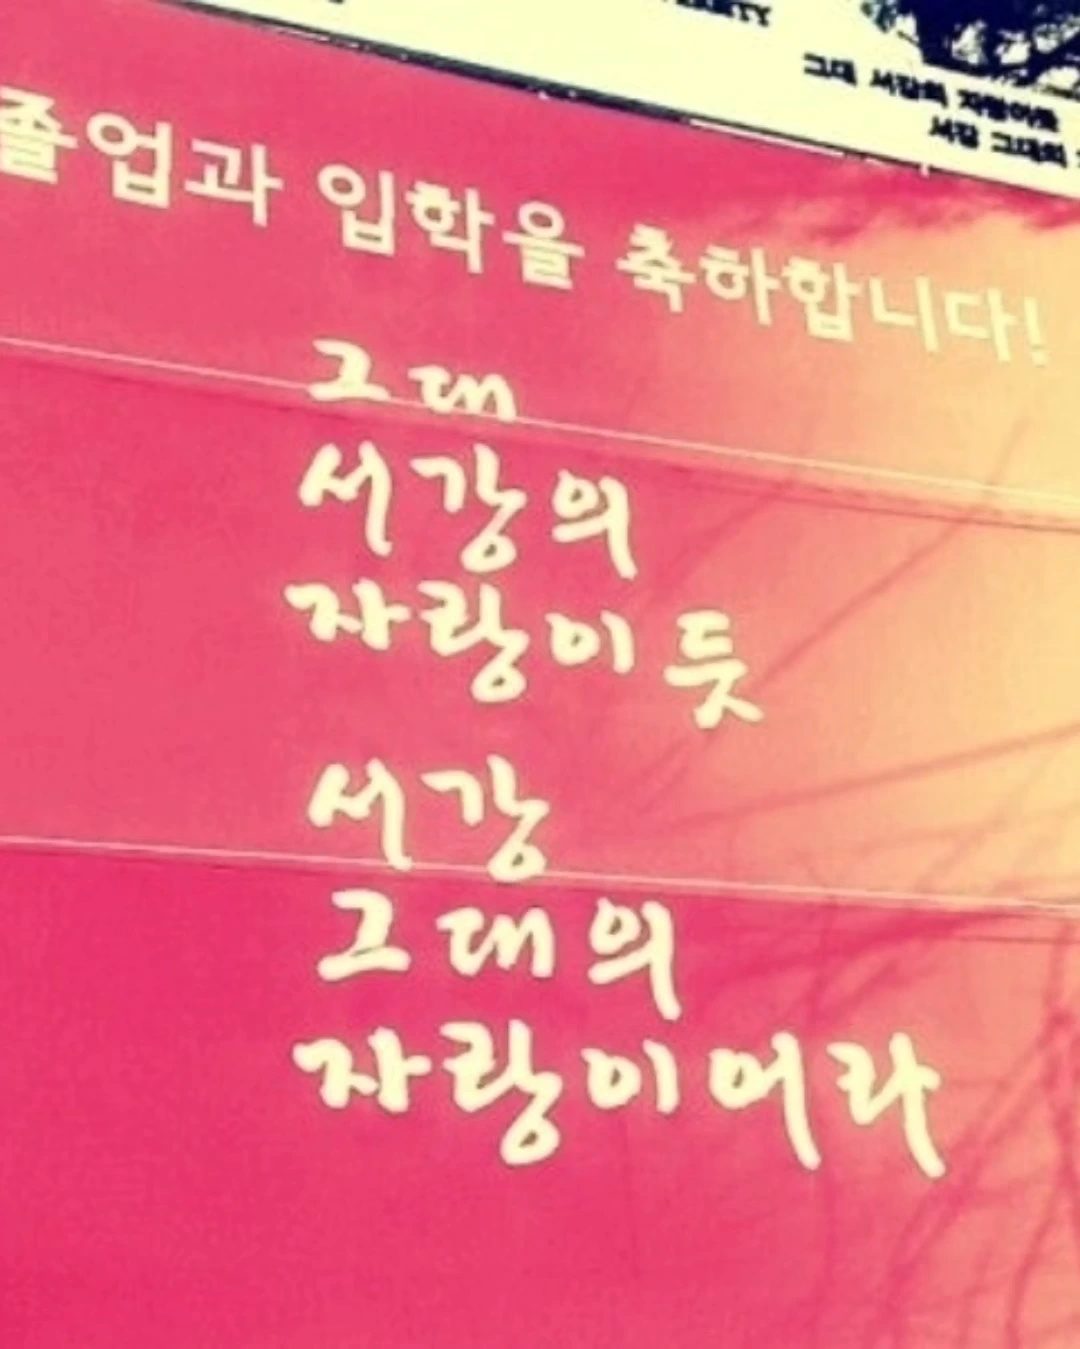 그대 서강의 자랑이듯
서강 그대의
졸업과 입학을 축하합니다!
그대
서강의
자랑이듯
서강
그대의
자랑이어라